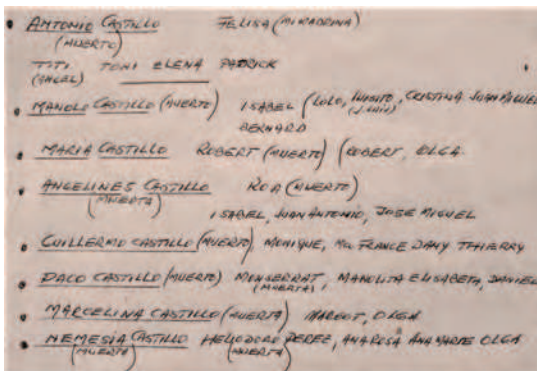 • ANTONIO CASTILLO FELISA (MI MADRINA)
(MUERTO)
TITI TONI ELENA PATRICK
(ANGEL)
• MANOLO CASTILLO (MUERTO) ISABEL (LOLO, CRISTINA JUAN MIGUEL
(J. LUIS)
BERNARD
• MARIA CASTILLO ROBERT (MUERTO) (ROBERT, OLGA
• ANGELINES CASTILLO ROA (MUERTO)
(MUERTA)
ISABEL, JUAN ANTONIO, JOSE MIGUEL
• GUILLERMO CASTILLO (MUERTO) MONIQUE, Ma FRANCE DANY THIERRY
• PACO CASTILLO (MUERTO) MONSERRAT, MANOLITA ELISABETA, DANIEL
(MUERTA)
• MARCELINA CASTILLO (MUERTA) MARGOT, OLGA
• NEMESIA CASTILLO HELIODORO PEREZ, ANA ROSA ANA MARIE OLGA
(MUERTA) (MUERTA)